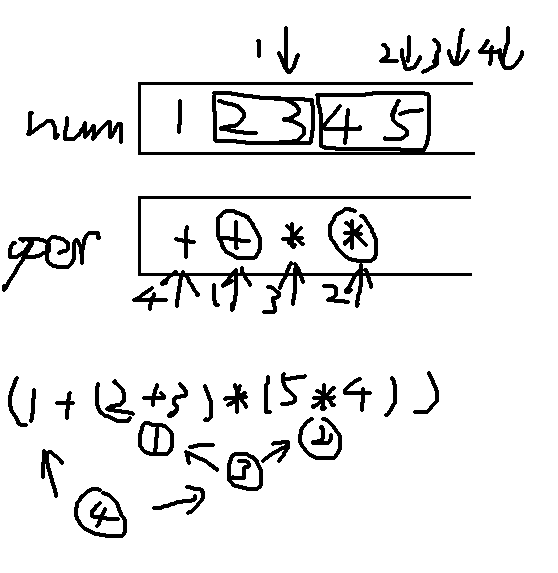 1 2 3 4
num 1 2 3 4 5
oper + + * *
4 1 3 2
(1 + (2+3) * (5 * 4))
1 2
3
4